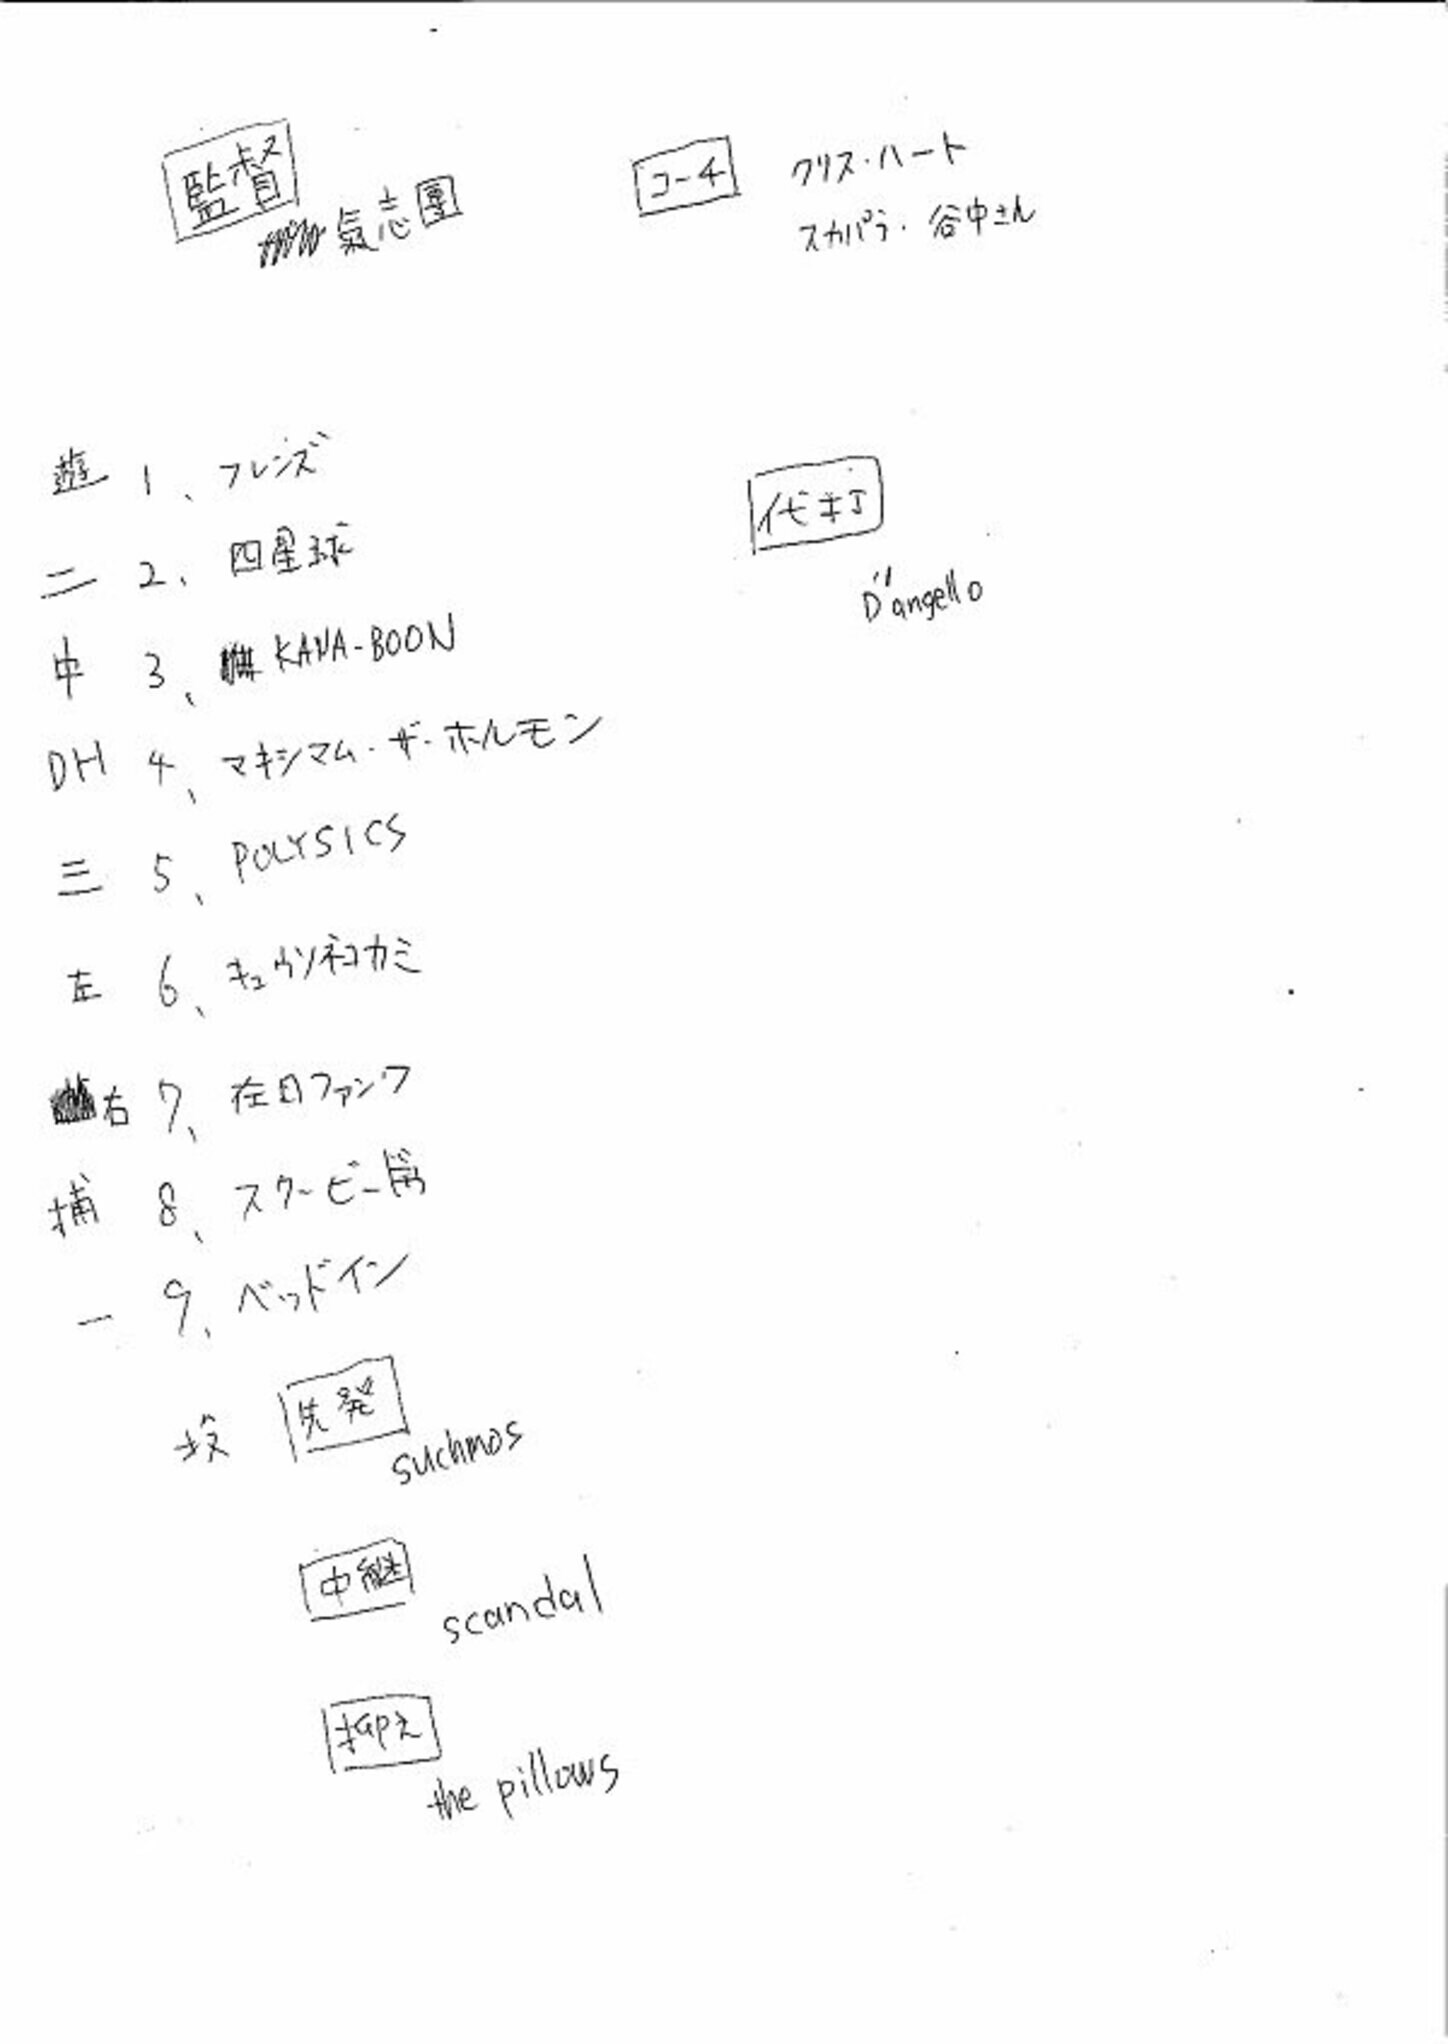 監督
氣志團
コーチ
クリス・ハート
スカパラ・谷中さん
遊 1、フレンズ
二 2、四星球
中 3、KANA-BOON
DH 4、マキシマム・ザ・ホルモン
三 5、POLYSICS
左 6、キュウソネコカミ
右 7、在日ファンク
捕 8、スクービー
一 9、ベッドイン
代打
D"angello
投 先発
suchmos
中継
scandal
抑え
the pillows